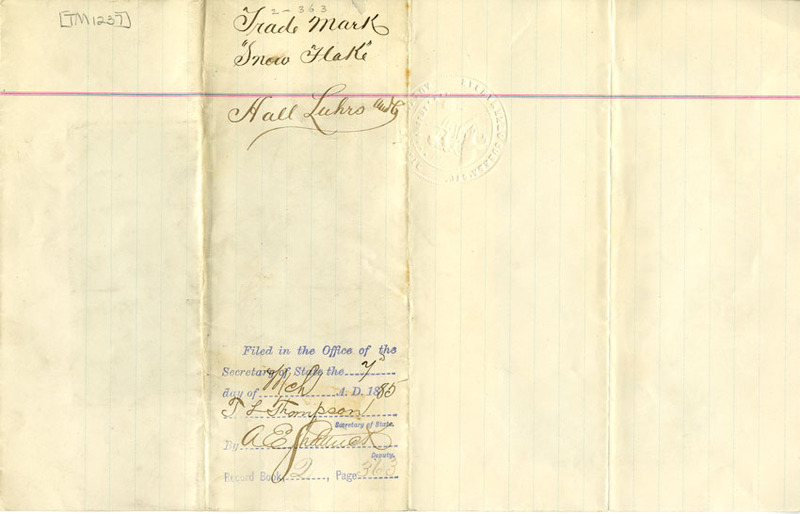 [TM1237]
2-363
Trade Mark
"Snow Flake"
Hall Luhrs and Co
Filed in the Office of the
Secretary of State the 7th
day of Mch A. D. 1885
T L Thompson
Secretary of State.
By A E Shattuck
Deputy.
Record Book 2, Page 363